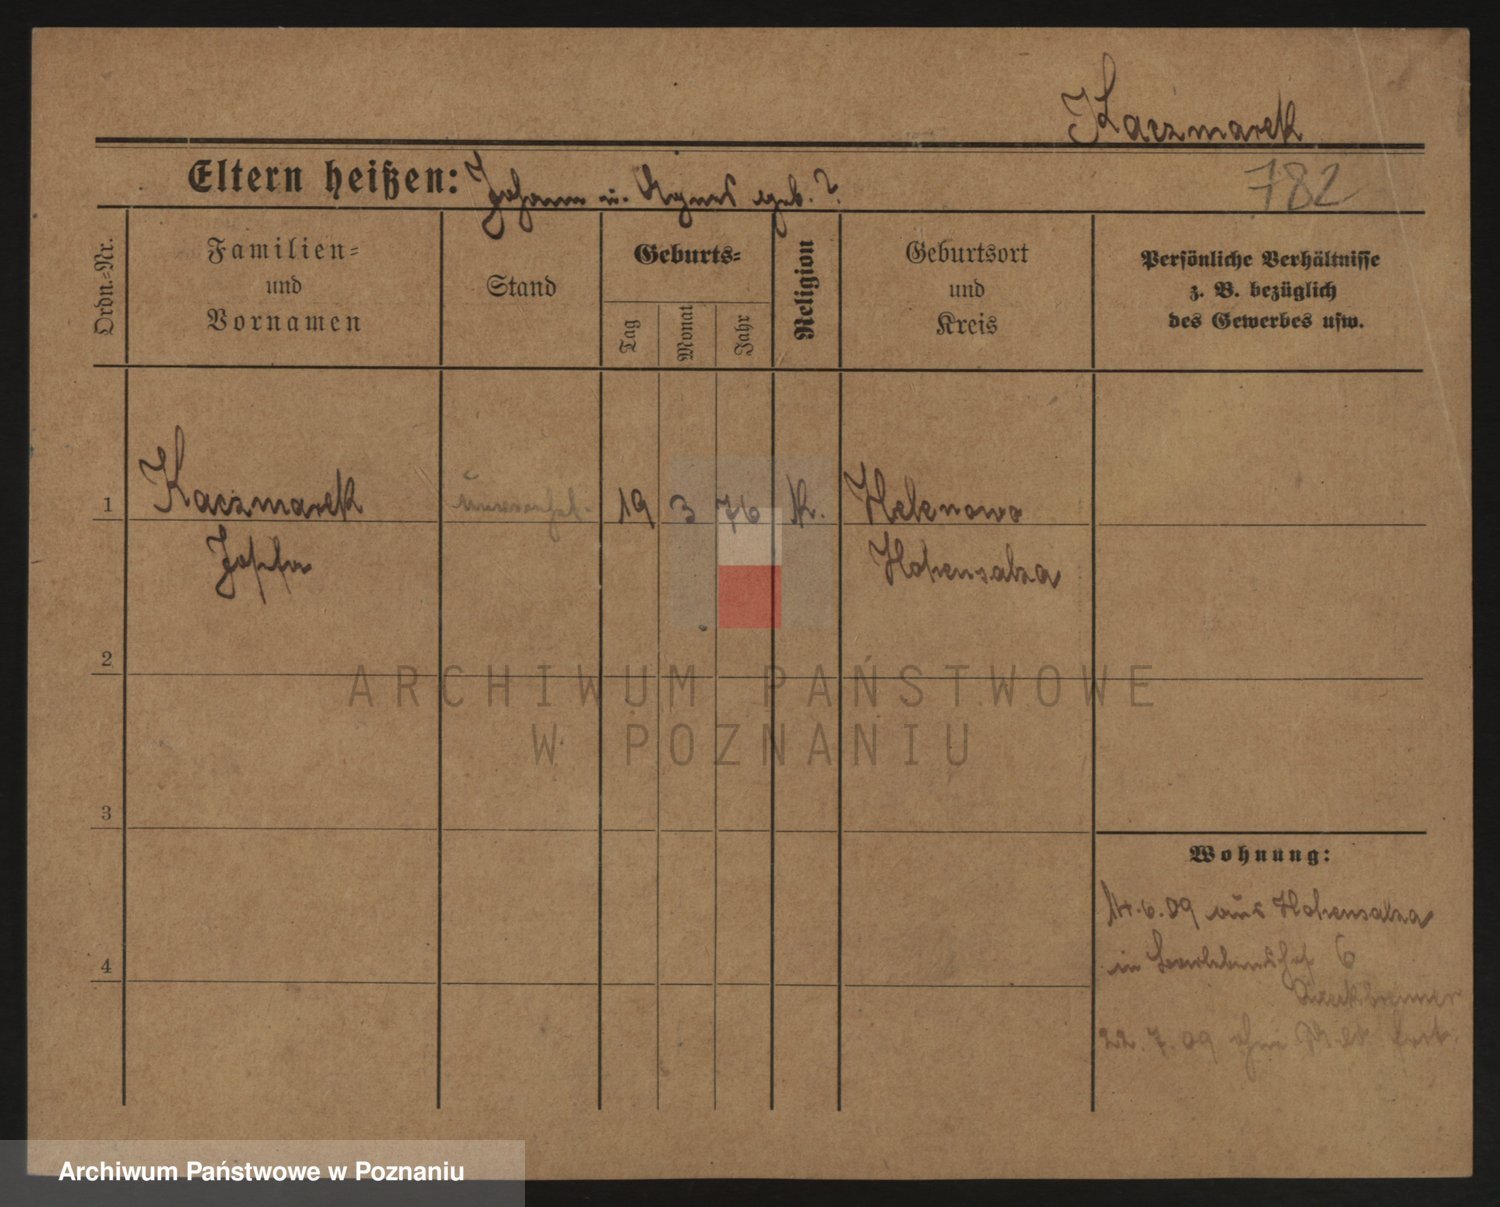 Kaczmarek
Eltern heißen: Johann u. Agnes geb. ?
782
Ordn.-Nr.
Familien-
und
Vornamen
Stand
Geburts-
Tag
Monat
Jahr
Religion
Geburtsort
und
Kreis
Persönliche Verhältnisse
z. B. bezüglich
des Gewerbes usw.
1 Kaczmarek 19 3 76 K. Helenowo
Josefa Hohensalza
2
ARCHIWUM PAŃSTWOWE
W POZNANIU
3
Wohnung:
14.6.09 aus Hohensalza
4
in 6
22.7.09 ohne fort.
Archiwum Państwowe w Poznaniu